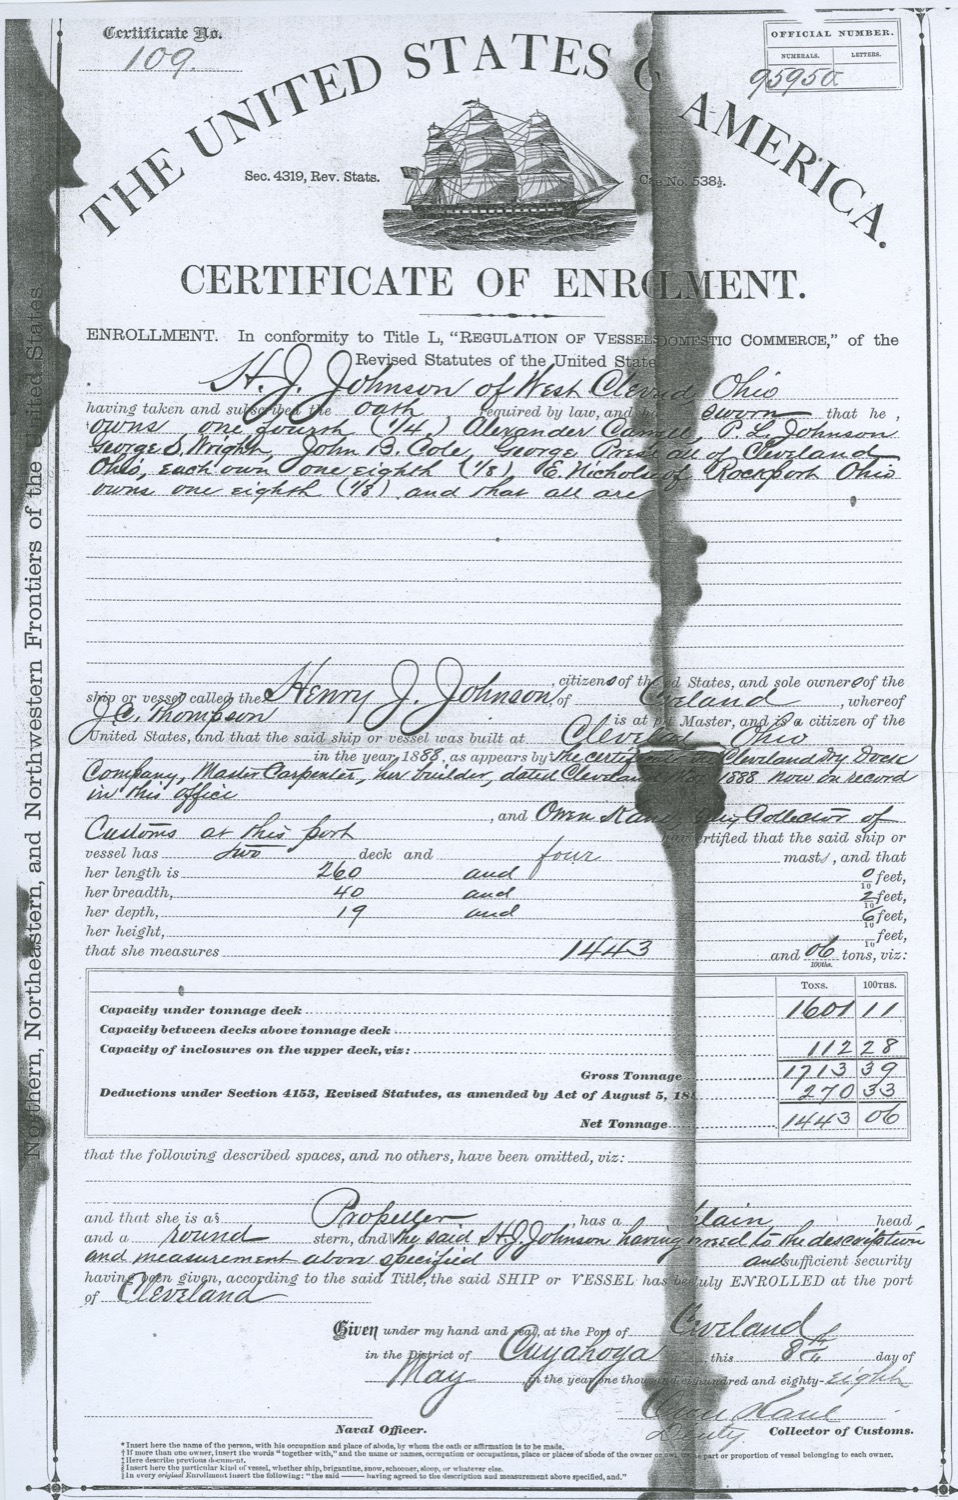 Certificate No.
109.
OFFICIAL NUMBER.
NUMERALS. LETTERS.
95950
THE UNITED STATES O AMERICA.
Sec. 4319, Rev. Stats.
No. 538½.
CERTIFICATE OF ENROLMENT.
ENROLLMENT. In conformity to Title L, "REGULATION OF VESSEL DOMESTIC COMMERCE," of the
Revised Statutes of the United State
H. J. Johnson of West Ohio
having taken and subscribed the oath required by law, and sworn that he,
owns one fourth (1/4) Alexander P. L. Johnson
George S. Wright, John B. Cole, George all of Cleveland
Ohio, each own one eighth (1/8) E. Nichols of Rockport Ohio
owns one eighth (1/8) and that all are
citizens of the States, and sole owners of the
ship or vessel called the Henry J. Johnson, of land, whereof
J. C. Thompson is at Master, and is a citizen of the
United States, and that the said ship or vessel was built at Ohio
in the year 1888, as appears by the certi Cleveland Dry Dock
Company, Master Carpenter, her builder, dated Cleveland 1888 now on record
in this office
, and Owen Collector of
Customs at this port certified that the said ship or
vessel has two deck and four masts, and that
her length is 260 and 0/10 feet,
her breadth, 40 and 2/10 feet,
her depth, 19 and 6/10 feet,
her height, /10 feet,
that she measures 1443 and 06/100ths. tons, viz:
TONS. 100THS.
Capacity under tonnage deck 1601 11
Capacity between decks above tonnage deck
Capacity of inclosures on the upper deck, viz: 112 28
Gross Tonnage 1713 39
Deductions under Section 4153, Revised Statutes, as amended by Act of August 5, 18 270 33
Net Tonnage 1443 06
that the following described spaces, and no others, have been omitted, viz:
and that she is a Propeller has a plain head
and a round stern, and the said H. J. Johnson having agreed to the description
and measurement above specified and sufficient security
having been given, according to the said Title, the said SHIP or VESSEL has duly ENROLLED at the port
of Cleveland
Given under my hand and seal, at the Port of Cleveland
in the District of Cuyahoga this 8th day of
May in the year one thousand eight hundred and eighty-eighth
Deputy
Naval Officer. Collector of Customs.
* Insert here the name of the person, with his occupation and place of abode, by whom the oath or affirmation is to be made.
† If more than one owner, insert the words "together with," and the name or names, occupation or occupations, place or places of abode of the owner or part or proportion of vessel belonging to each owner.
‡ Here describe previous document.
Insert here the particular kind of vessel, whether ship, brigantine, snow, schooner, sloop, or whatever else.
In every original Enrollment insert the following: "the said —— having agreed to the description and measurement above specified, and."
Northern, Northeastern, and Northwestern Frontiers of the United States.